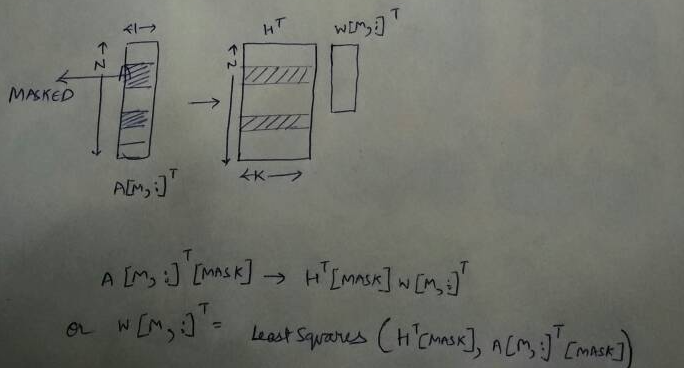 1
N
MASKED
A[M,:]ᵀ
Hᵀ
N
K
W[M,:]ᵀ
A[M,:]ᵀ[MASK] → Hᵀ[MASK] W[M,:]ᵀ
or W[M,:]ᵀ = Least Squares (Hᵀ[MASK], A[M,:]ᵀ[MASK])